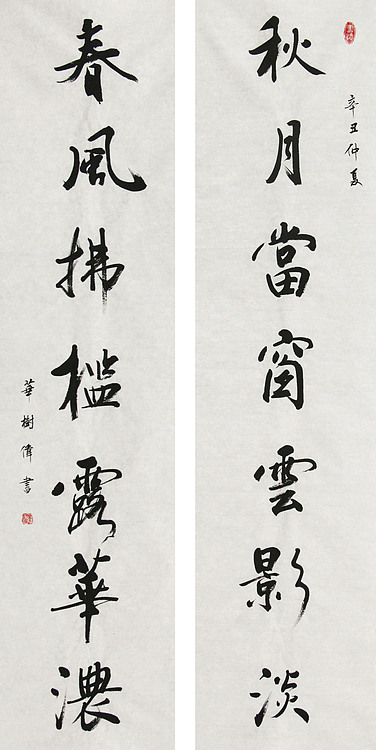 秋月當窗雲影淡
辛丑仲夏
春風拂檻露華濃
華樹偉書